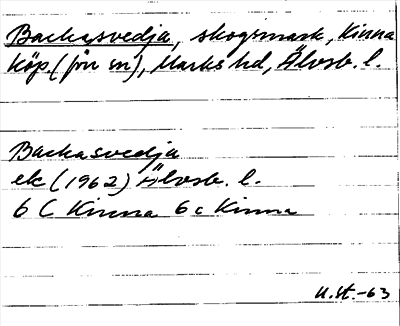 Backasvedja, skogsmark, Kinna
köp. (jön sn), Marks hd, Älvsb. l.
Backasvedja
ek (1962) Älvsb. l.
6 C Kinna 6 c Kinna
U.St.-63